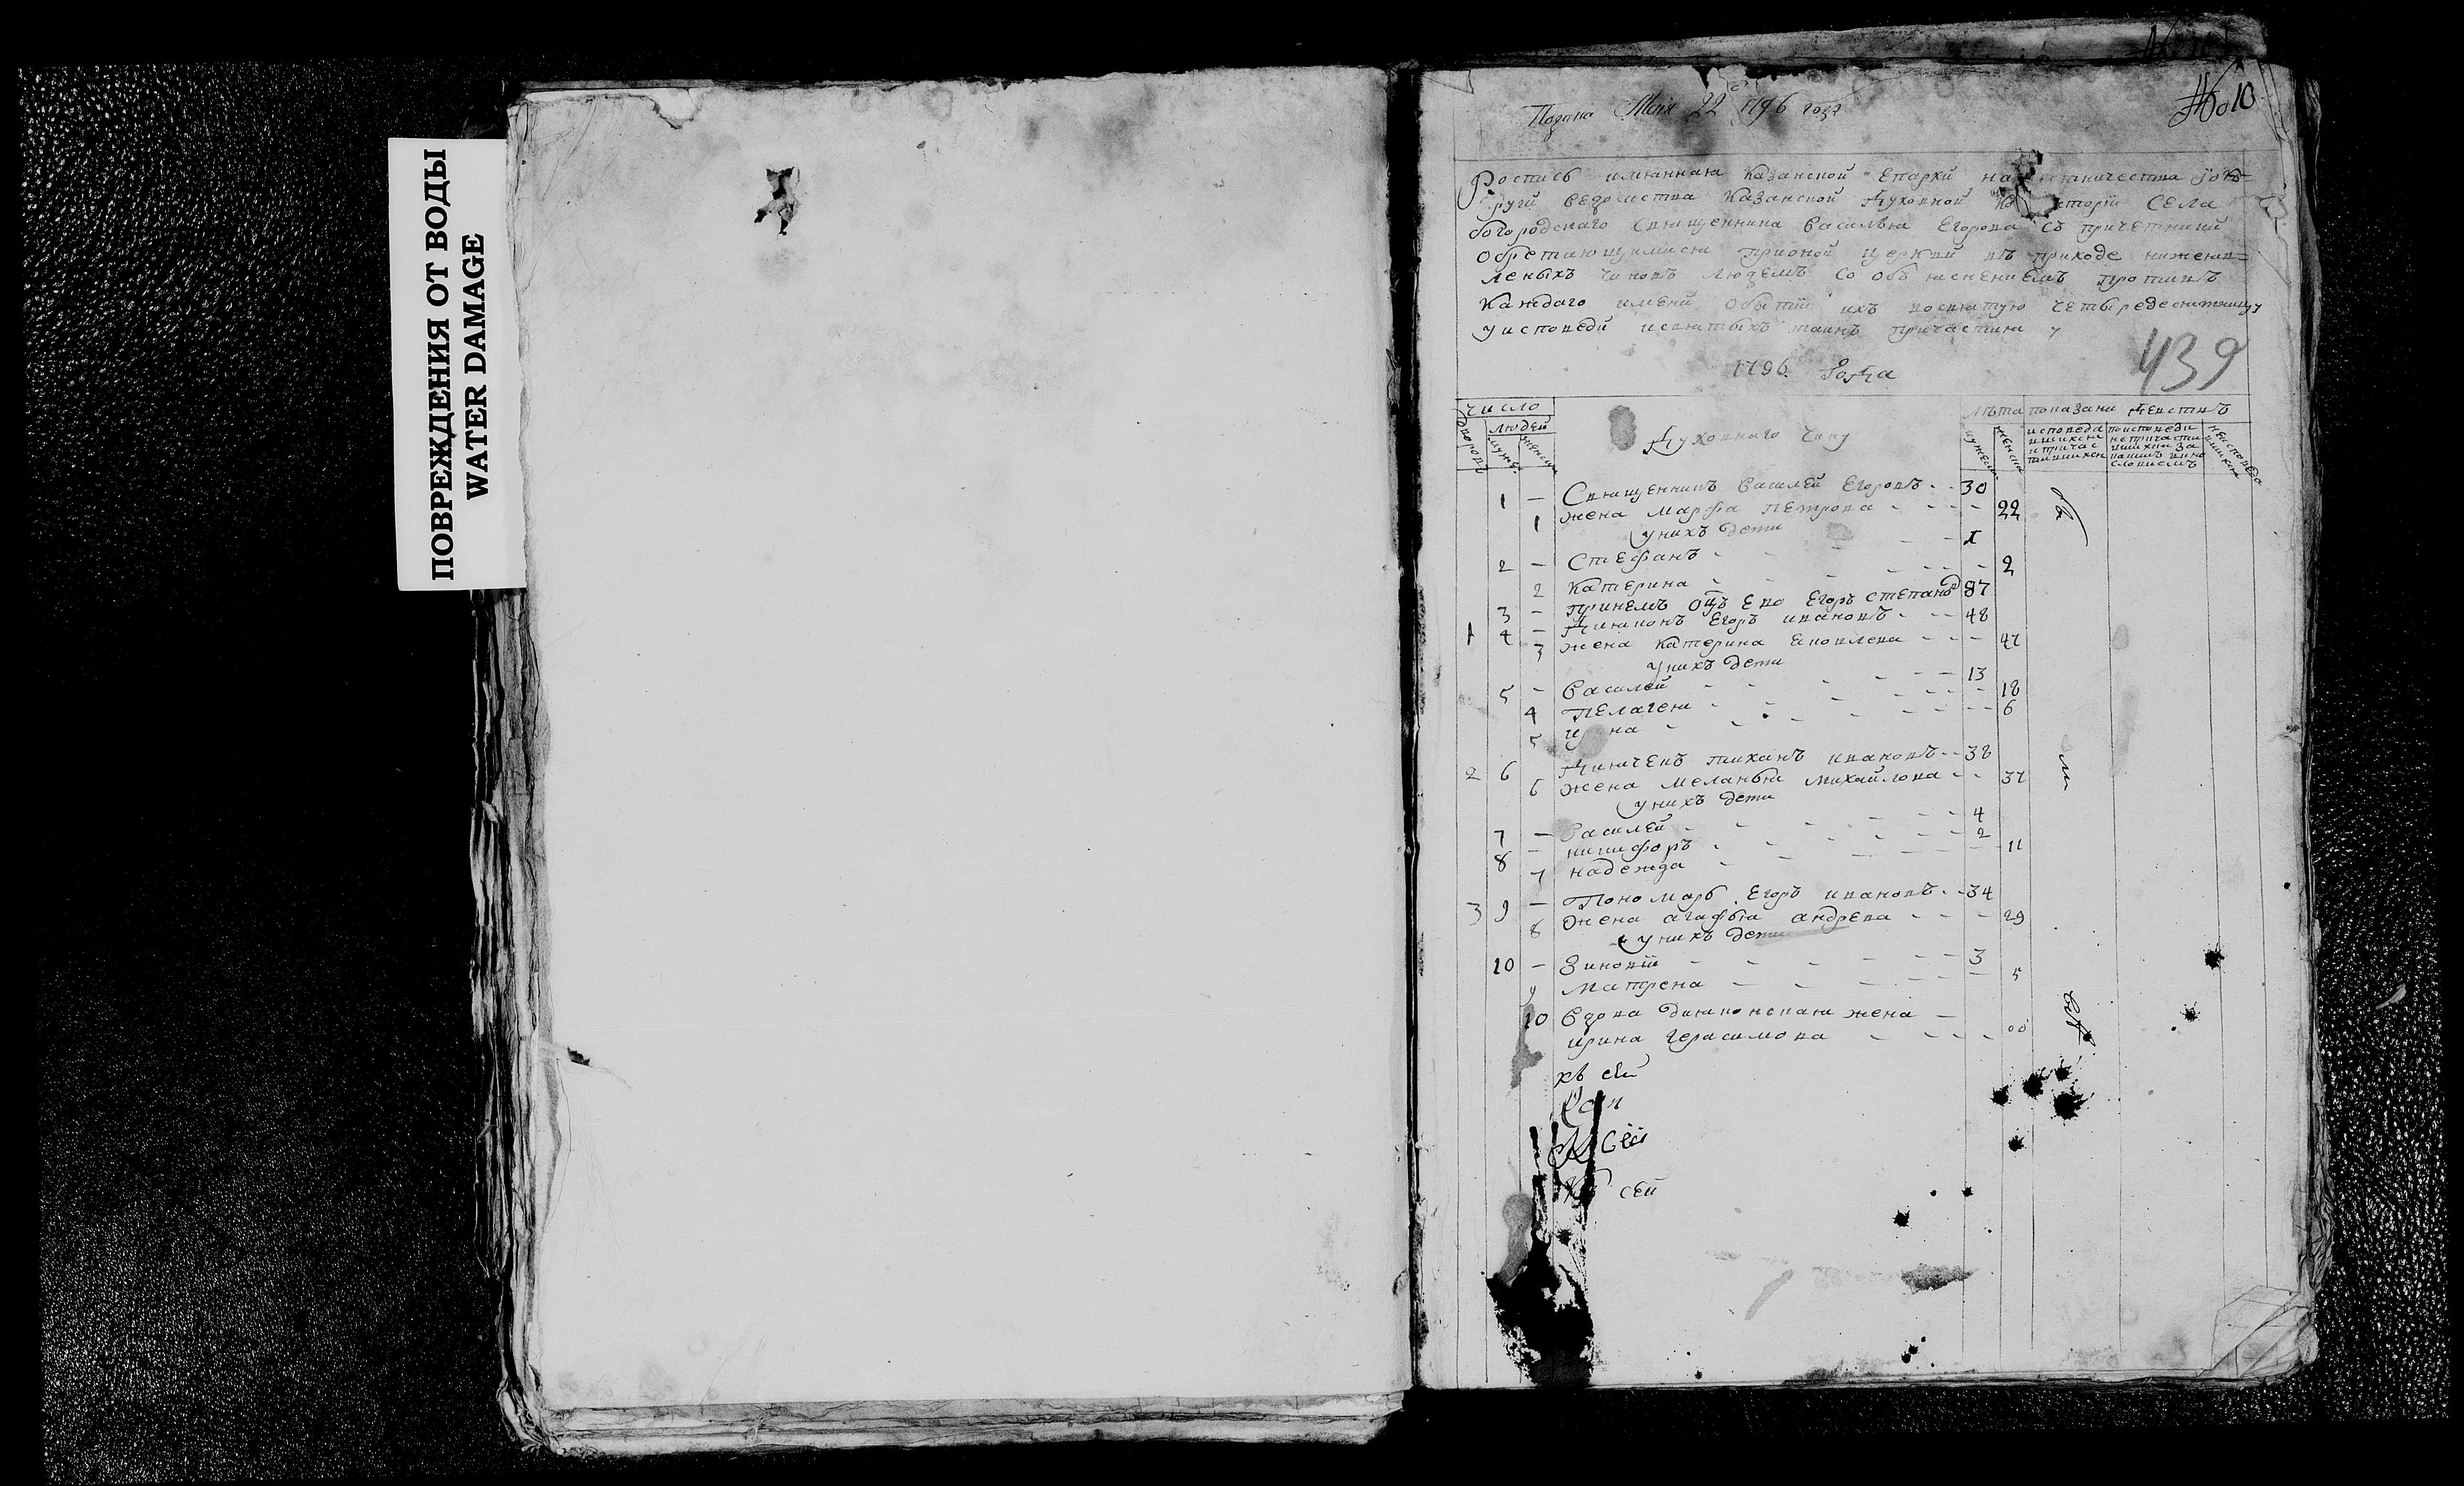 ПОВРЕЖДЕНИЯ ОТ ВОДЫ
WATER DAMAGE
Подана Маія 22 1796 года
№ 10
Роспись имяннаꙗ Казанской Епархи округи ведомства Казанской Духовной Села
богородскаго Священника Василья Егорова съ причетники
обретающимися при оной церкви въ приходе нижеяв=
леныхъ чиновъ людемъ со объяснениемъ противъ
каждаго имени о бытіи ихъ во святую четыредесятницу
у исповеди и святыхъ таинъ причастия
439
1796 Года
число лѣта показани действъ
дворовъ людей Духовнаго чину
мужеск женска мужеска женска
исповеда вшихся и причас тившихся
по исповеди не причасти вшихся за
не исповеда вшихся
1 — Священникъ Василей Егоровъ 30
1 жена Марфа Петрова 22
у нихъ дети
2 — Стефанъ
2 Катерина 2
3 — при немъ отцъ ево Егоръ степановъ 87
1 4 — Диаконъ Егоръ ивановъ 48
3 жена Катерина Яковлева 47
у нихъ дети
5 — Василей 13
4 Пелагея 18
5 6
2 6 Дьячекъ тиханъ ивановъ 38
6 жена меланья михайлова 37
у нихъ дети
7 — Василей 4
8 — никифоръ 2
7 надежда 11
3 9 — Пономарь Егоръ ивановъ 34
8 жена агафья андрева 29
у нихъ дети
10 — Зиновій 3
9 матрена 5
10 Вдова дияконская жена
ирина герасимова
сей
сей